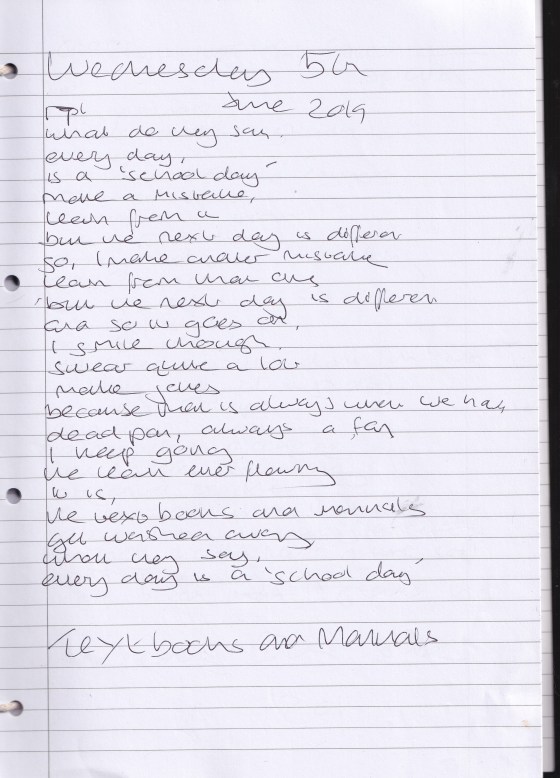 Wednesday 5th
June 2019
what do they say.
every day,
is a 'school day'
make a mistake,
learn from it
but the next day is different
so, I make another mistake
learn from that one
but the next day is different
and so it goes on,
I smile though.
swear quite a lot
make jokes
because that is always what we had,
dead pan, always a
I keep going
the learn ever flowing
it is,
the text books and manuals
get washed away
what they say,
every day is a 'school day'
Textbooks and Manuals